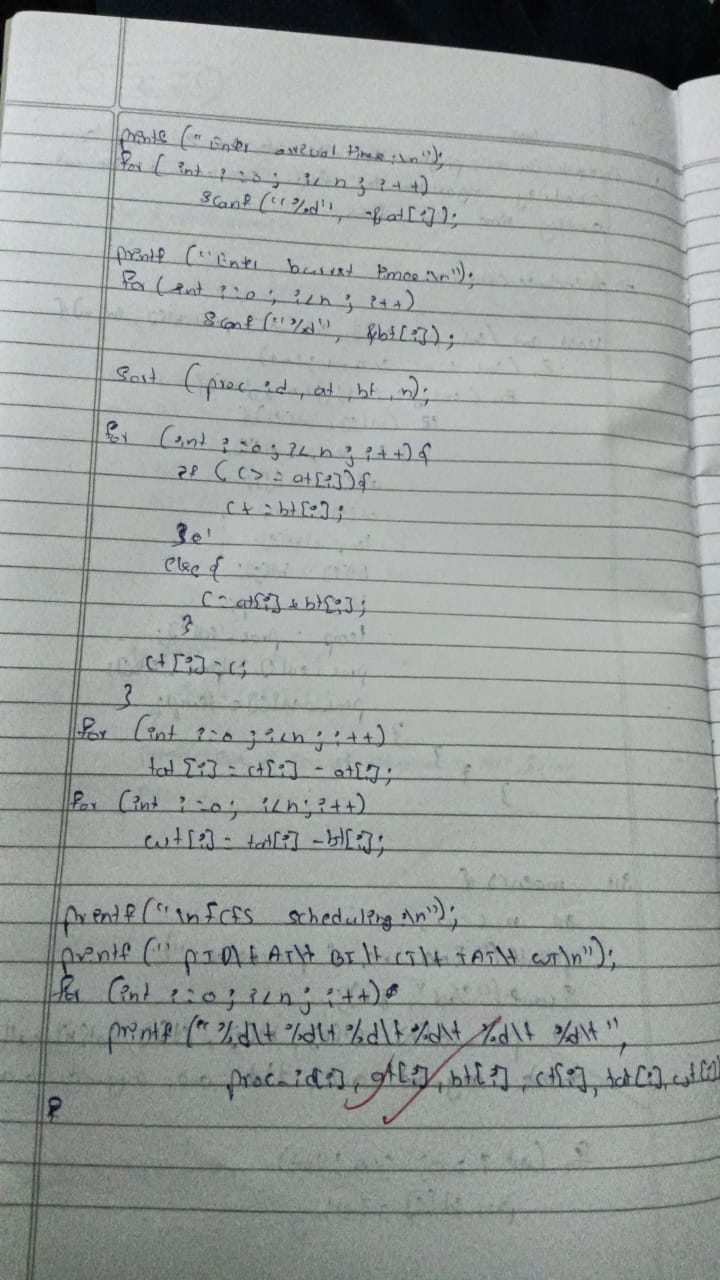 printf ("Enter arrival time :\n");
for ( int i=0 ; i< n ; i++)
scanf ("%d", &at[i]);
printf ("Enter burst time :\n");
for (int i=0 ; i<n ; i++)
scanf ("%d", &bt[i]);
sort (proc_id, at, bt, n);
for (int i=0; i< n ; i++) {
if (c>= at[i]) {
c+ =bt[i];
}
else {
c= at[i] + bt[i];
}
ct[i] = c;
}
for (int i=0 ; i<n ; i++)
tat [i] = ct[i] - at[i];
for (int i=0; i<n; i++)
wt[i] = tat[i] - bt[i];
printf ("\nfcfs scheduling \n");
printf (" PID\t AT\t BT \t CT\t TAT\t WT\n");
for (int i=0 ; i<n ; i++)
printf ("%d\t %d\t %d\t %d\t %d\t %d\t",
proc_id[i], at[i], bt[i], ct[i], tat[i], wt[i]